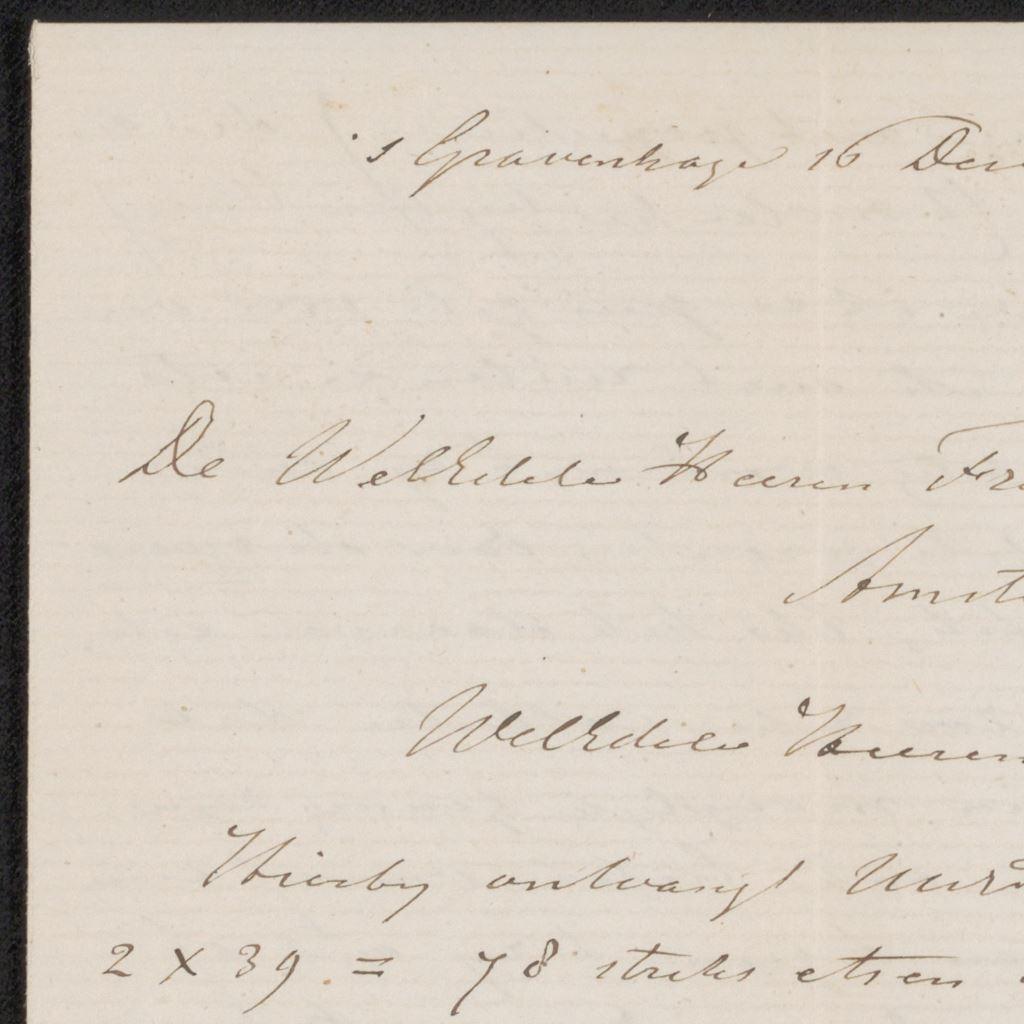 's Gravenhage 16 Dec
De WelEdele Heeren Fr
Amst
WelEdele Heeren
Hierby ontvangt
2 x 39 = 78 stuks etsen